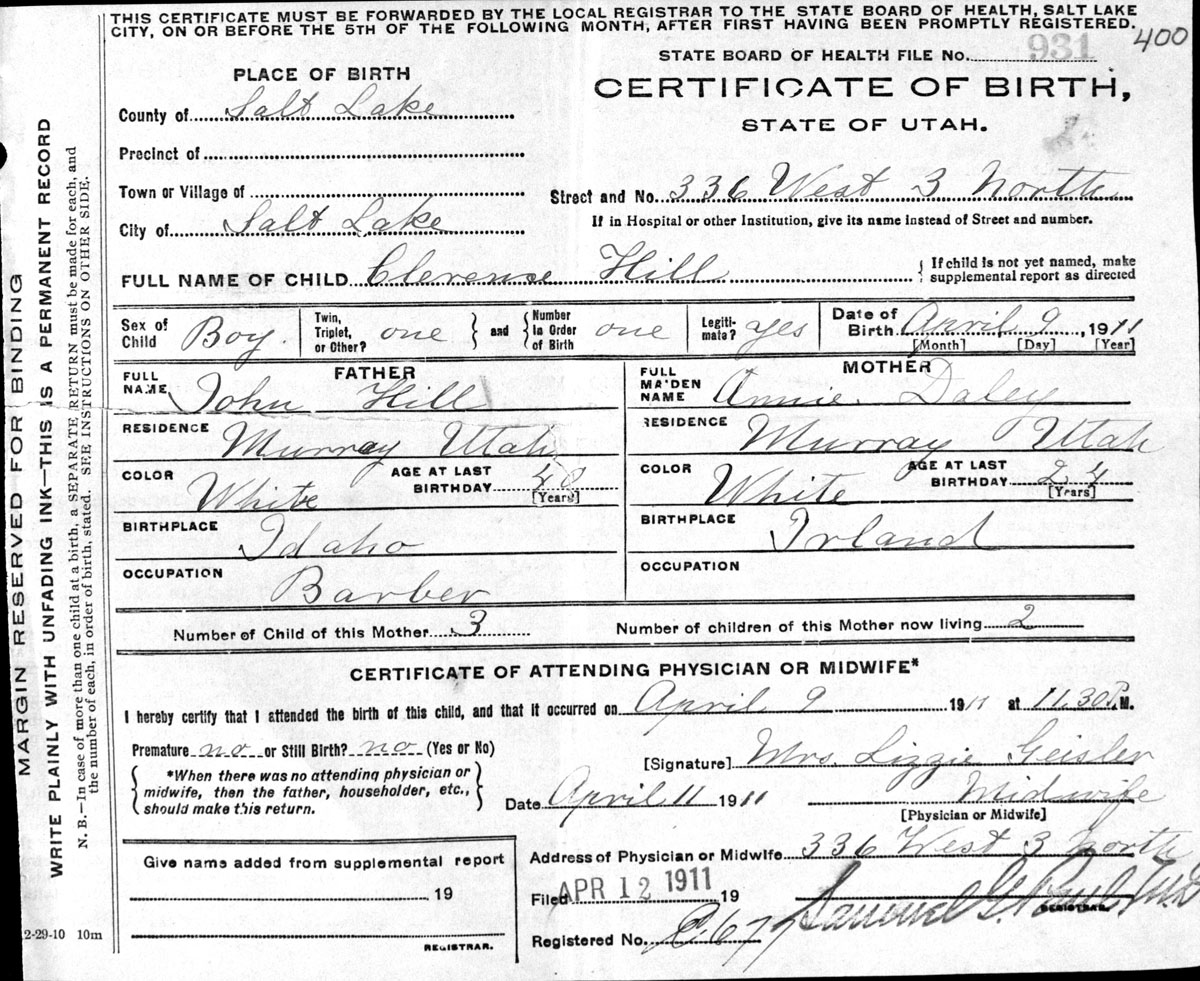 THIS CERTIFICATE MUST BE FORWARDED BY THE LOCAL REGISTRAR TO THE STATE BOARD OF HEALTH, SALT LAKE
CITY, ON OR BEFORE THE 5TH OF THE FOLLOWING MONTH, AFTER FIRST HAVING BEEN PROMPTLY REGISTERED.
400
STATE BOARD OF HEALTH FILE No. 931
PLACE OF BIRTH
CERTIFICATE OF BIRTH,
STATE OF UTAH.
County of Salt Lake
Precinct of
Town or Village of
Street and No. 336 West 3 North
City of Salt Lake
If in Hospital or other Institution, give its name instead of Street and number.
FULL NAME OF CHILD Clerense Hill
{ If child is not yet named, make
supplemental report as directed
Sex of Child Boy
Twin, Triplet, or Other? one } and { Number in Order of Birth one
Legiti-mate? yes
Date of Birth April 9, 1911
[Month] [Day] [Year]
FATHER
FULL NAME John Hill
RESIDENCE Murray Utah
COLOR White
AGE AT LAST BIRTHDAY
[Years]
BIRTHPLACE Idaho
OCCUPATION Barber
MOTHER
FULL MAIDEN NAME Annie Daley
RESIDENCE Murray Utah
COLOR White
AGE AT LAST BIRTHDAY 24
[Years]
BIRTHPLACE Irland
OCCUPATION
Number of Child of this Mother 3
Number of children of this Mother now living 2
CERTIFICATE OF ATTENDING PHYSICIAN OR MIDWIFE*
I hereby certify that I attended the birth of this child, and that it occurred on April 9 1911 at 11.30 P.M.
Premature no or Still Birth? no (Yes or No)
[Signature] Mrs. Lizzie Geisler
{ *When there was no attending physician or
midwife, then the father, householder, etc.,
should make this return. }
Date April 11 1911
Midwife
[Physician or Midwife]
Give name added from supplemental report
19
REGISTRAR.
Address of Physician or Midwife 336 West 3 North
Filed APR 12 1911 19
Samuel G. Paul M.D.
REGISTRAR.
Registered No.
2-29-10 10m
MARGIN RESERVED FOR BINDING
WRITE PLAINLY WITH UNFADING INK—THIS IS A PERMANENT RECORD
N. B.—In case of more than one child at a birth, a SEPARATE RETURN must be made for each, and
the number of each, in order of birth, stated. SEE INSTRUCTIONS ON OTHER SIDE.